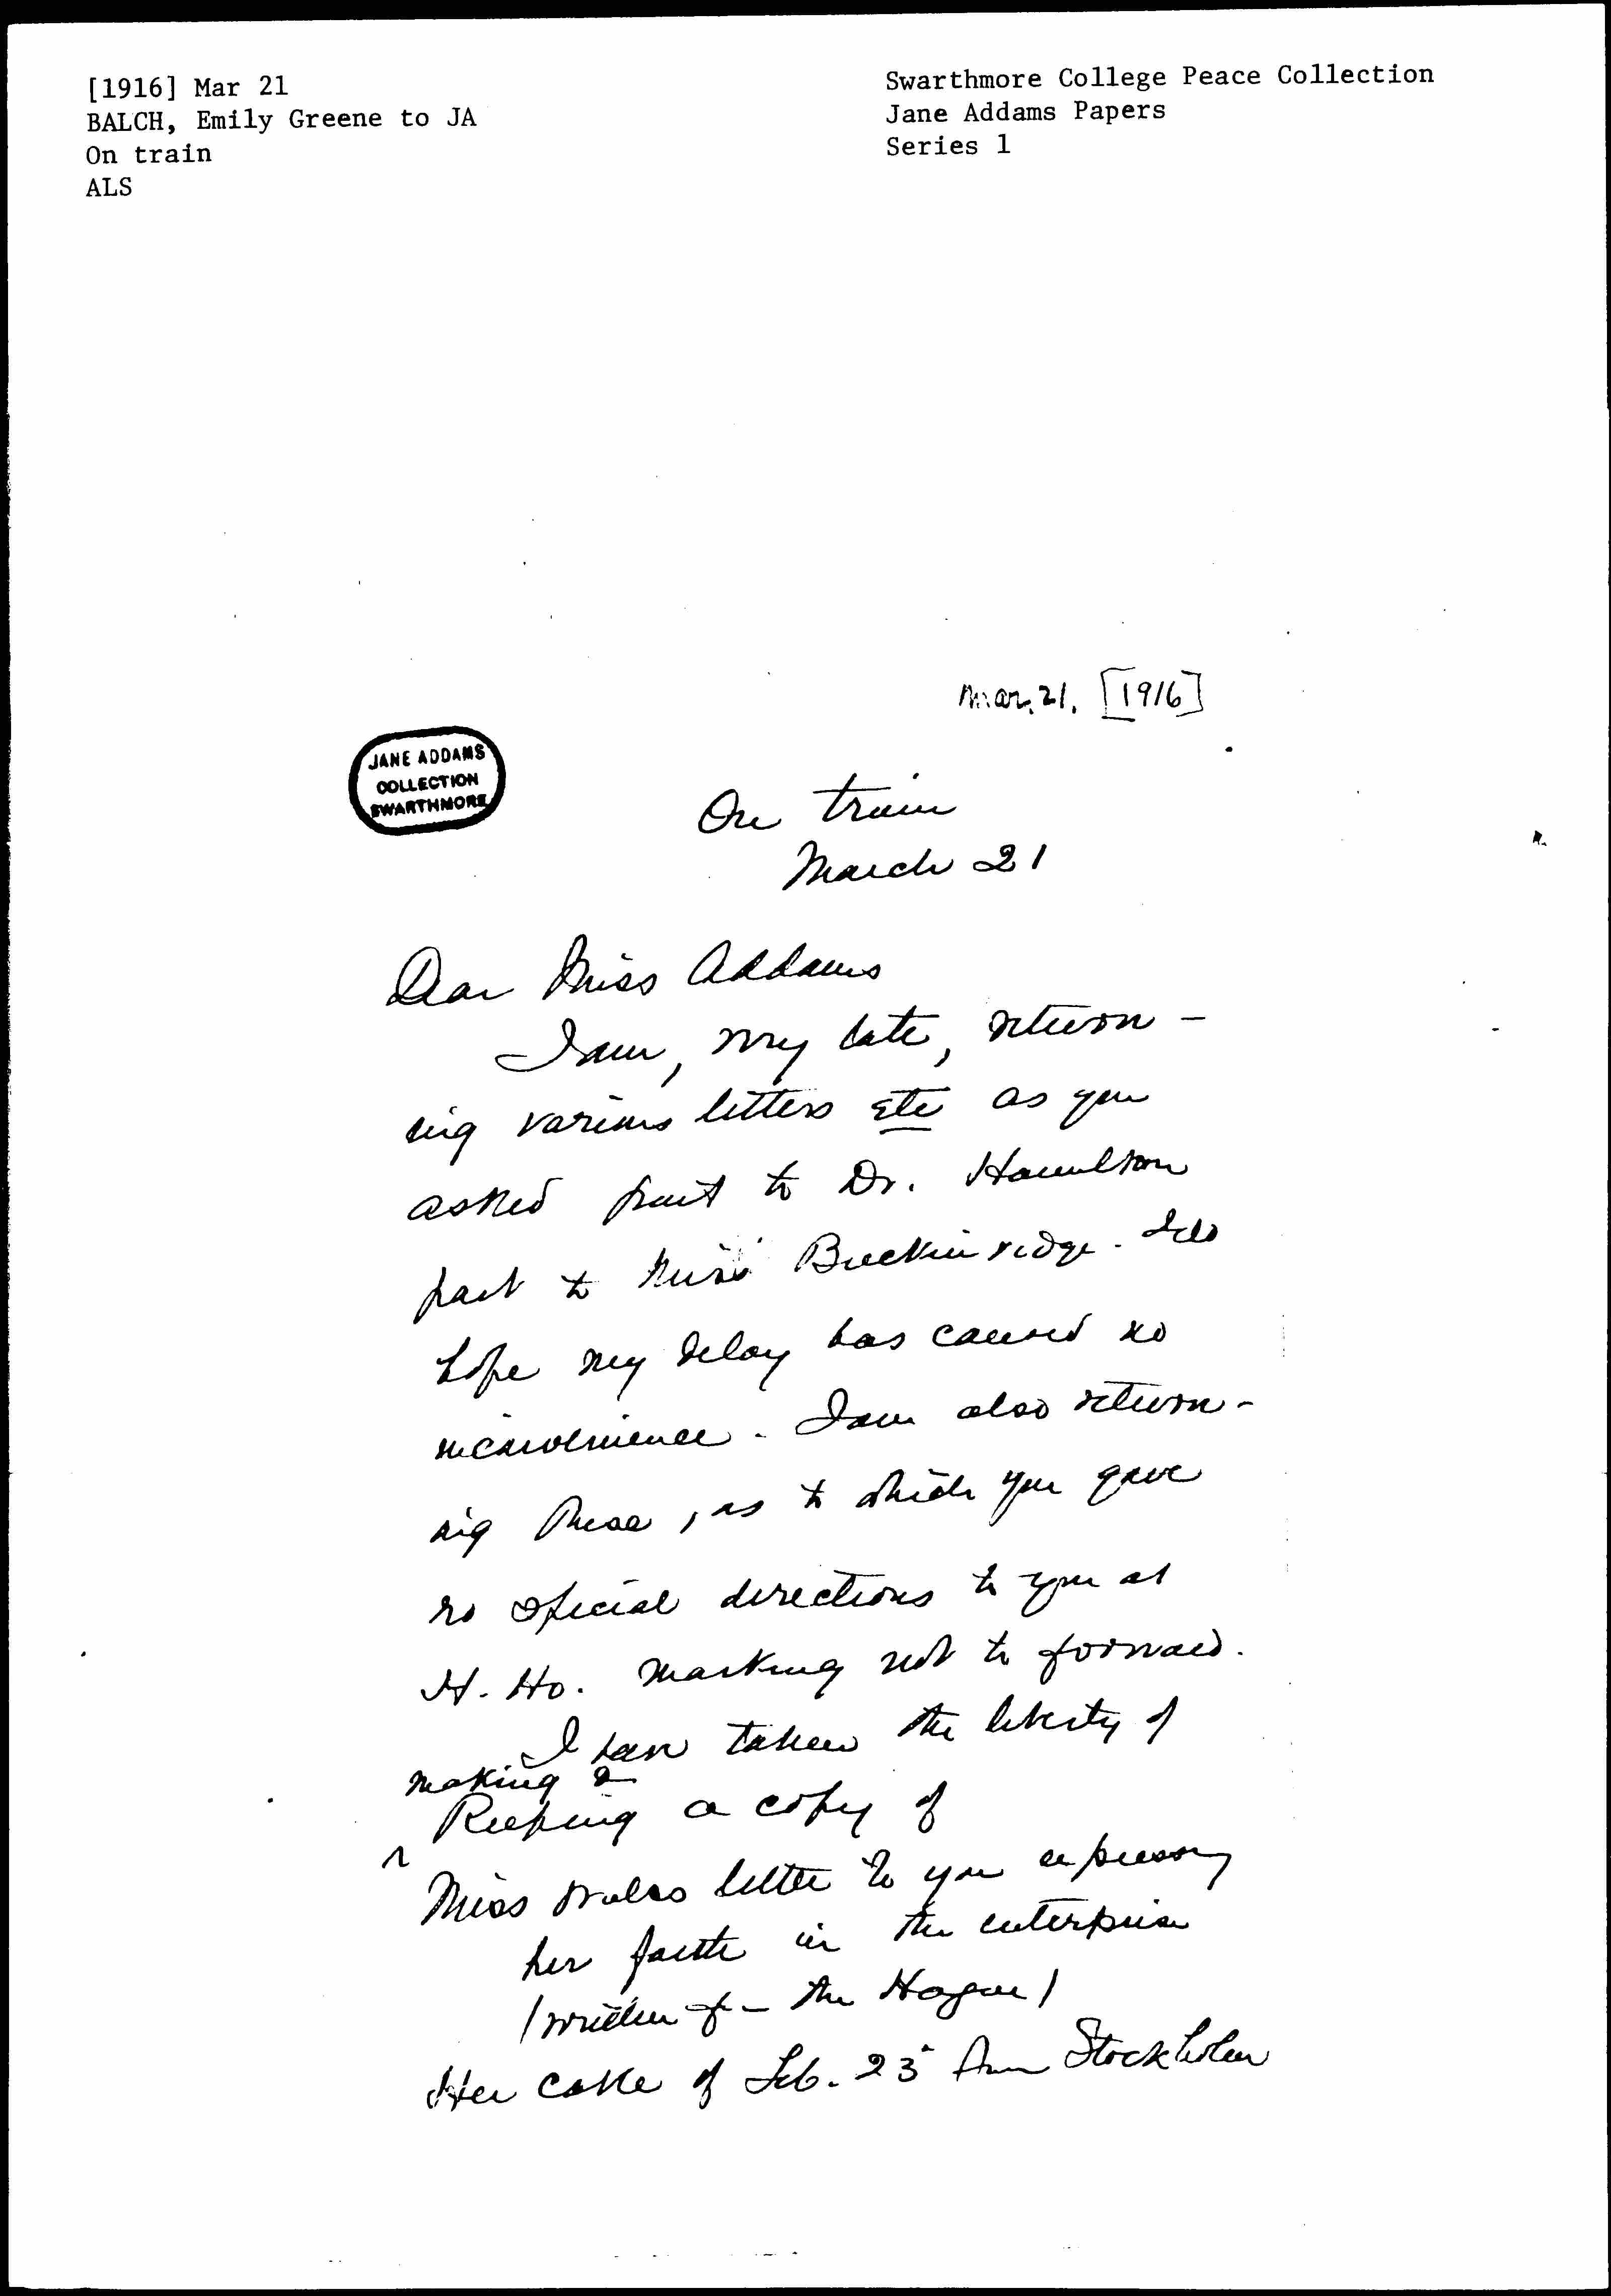 [1916] Mar 21
BALCH, Emily Greene to JA
On train
ALS
Swarthmore College Peace Collection
Jane Addams Papers
Series 1
Mar. 21. [1916]
JANE ADDAMS
COLLECTION
SWARTHMORE
On train
March 21
Dear Miss Addams
I am, very late, return-
ing various letters etc as you
asked part to Dr. Hamilton
part to Miss Breckinridge. I do
hope my delay has caused no
inconvenience. I am also return-
ing these, as to which you gave
no special directions to you at
H. Ho. marking not to forward.
I have taken the liberty of
making &
^ Keeping a copy of
Miss Wales letter to you expressing
her faith in the enterprise
(written f- the Hague)
Her cable of Feb. 23 from Stockholm